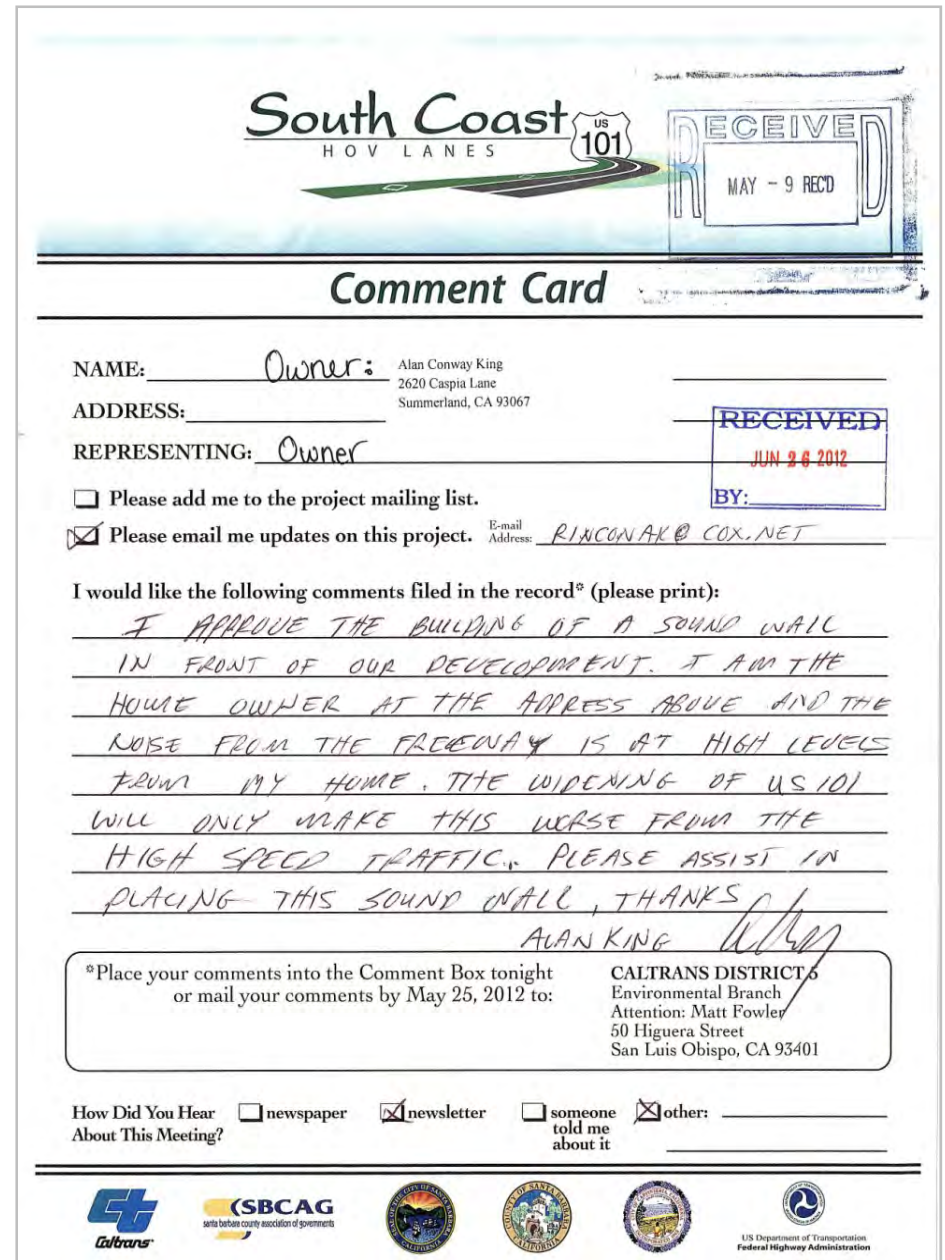 South Coast
HOV LANES
US
101
RECEIVED
MAY - 9 REC'D
Comment Card
NAME: Owner: Alan Conway King
2620 Caspia Lane
ADDRESS: Summerland, CA 93067
REPRESENTING: Owner
RECEIVED
JUN 26 2012
BY:
Please add me to the project mailing list.
Please email me updates on this project. E-mail Address: RINCONAK@COX.NET
I would like the following comments filed in the record* (please print):
I APPROVE THE BUILDING OF A SOUND WALL
IN FRONT OF OUR DEVELOPMENT. I AM THE
HOME OWNER AT THE ADDRESS ABOVE AND THE
NOISE FROM THE FREEWAY IS AT HIGH LEVELS
FROM MY HOME. THE WIDENING OF US 101
WILL ONLY MAKE THIS WORSE FROM THE
HIGH SPEED TRAFFIC. PLEASE ASSIST IN
PLACING THIS SOUND WALL, THANKS
ALAN KING
*Place your comments into the Comment Box tonight
or mail your comments by May 25, 2012 to:
CALTRANS DISTRICT 5
Environmental Branch
Attention: Matt Fowler
50 Higuera Street
San Luis Obispo, CA 93401
How Did You Hear About This Meeting?
newspaper
newsletter
someone told me about it
other:
Caltrans
SBCAG
santa barbara county association of governments
US Department of Transportation
Federal Highway Administration